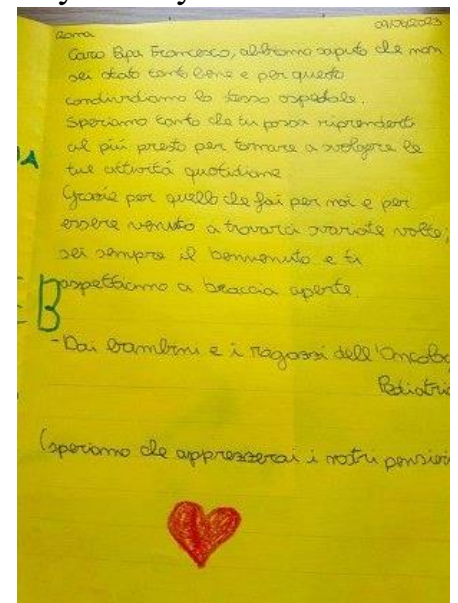 Roma
Caro Papa Francesco, abbiamo saputo che non
sei stato tanto bene e per questo
condividiamo lo stesso ospedale.
Speriamo tanto che tu possa riprenderti
al più presto per tornare a svolgere le
tue attività quotidiane
Grazie per quello che fai per noi e per
essere venuto a trovarci svariate volte,
sei sempre il benvenuto e ti
aspettiamo a braccia aperte.
B
-Dai bambini e i ragazzi dell'Oncolog
Pediatric
(speriamo che apprezzerai i nostri pensieri